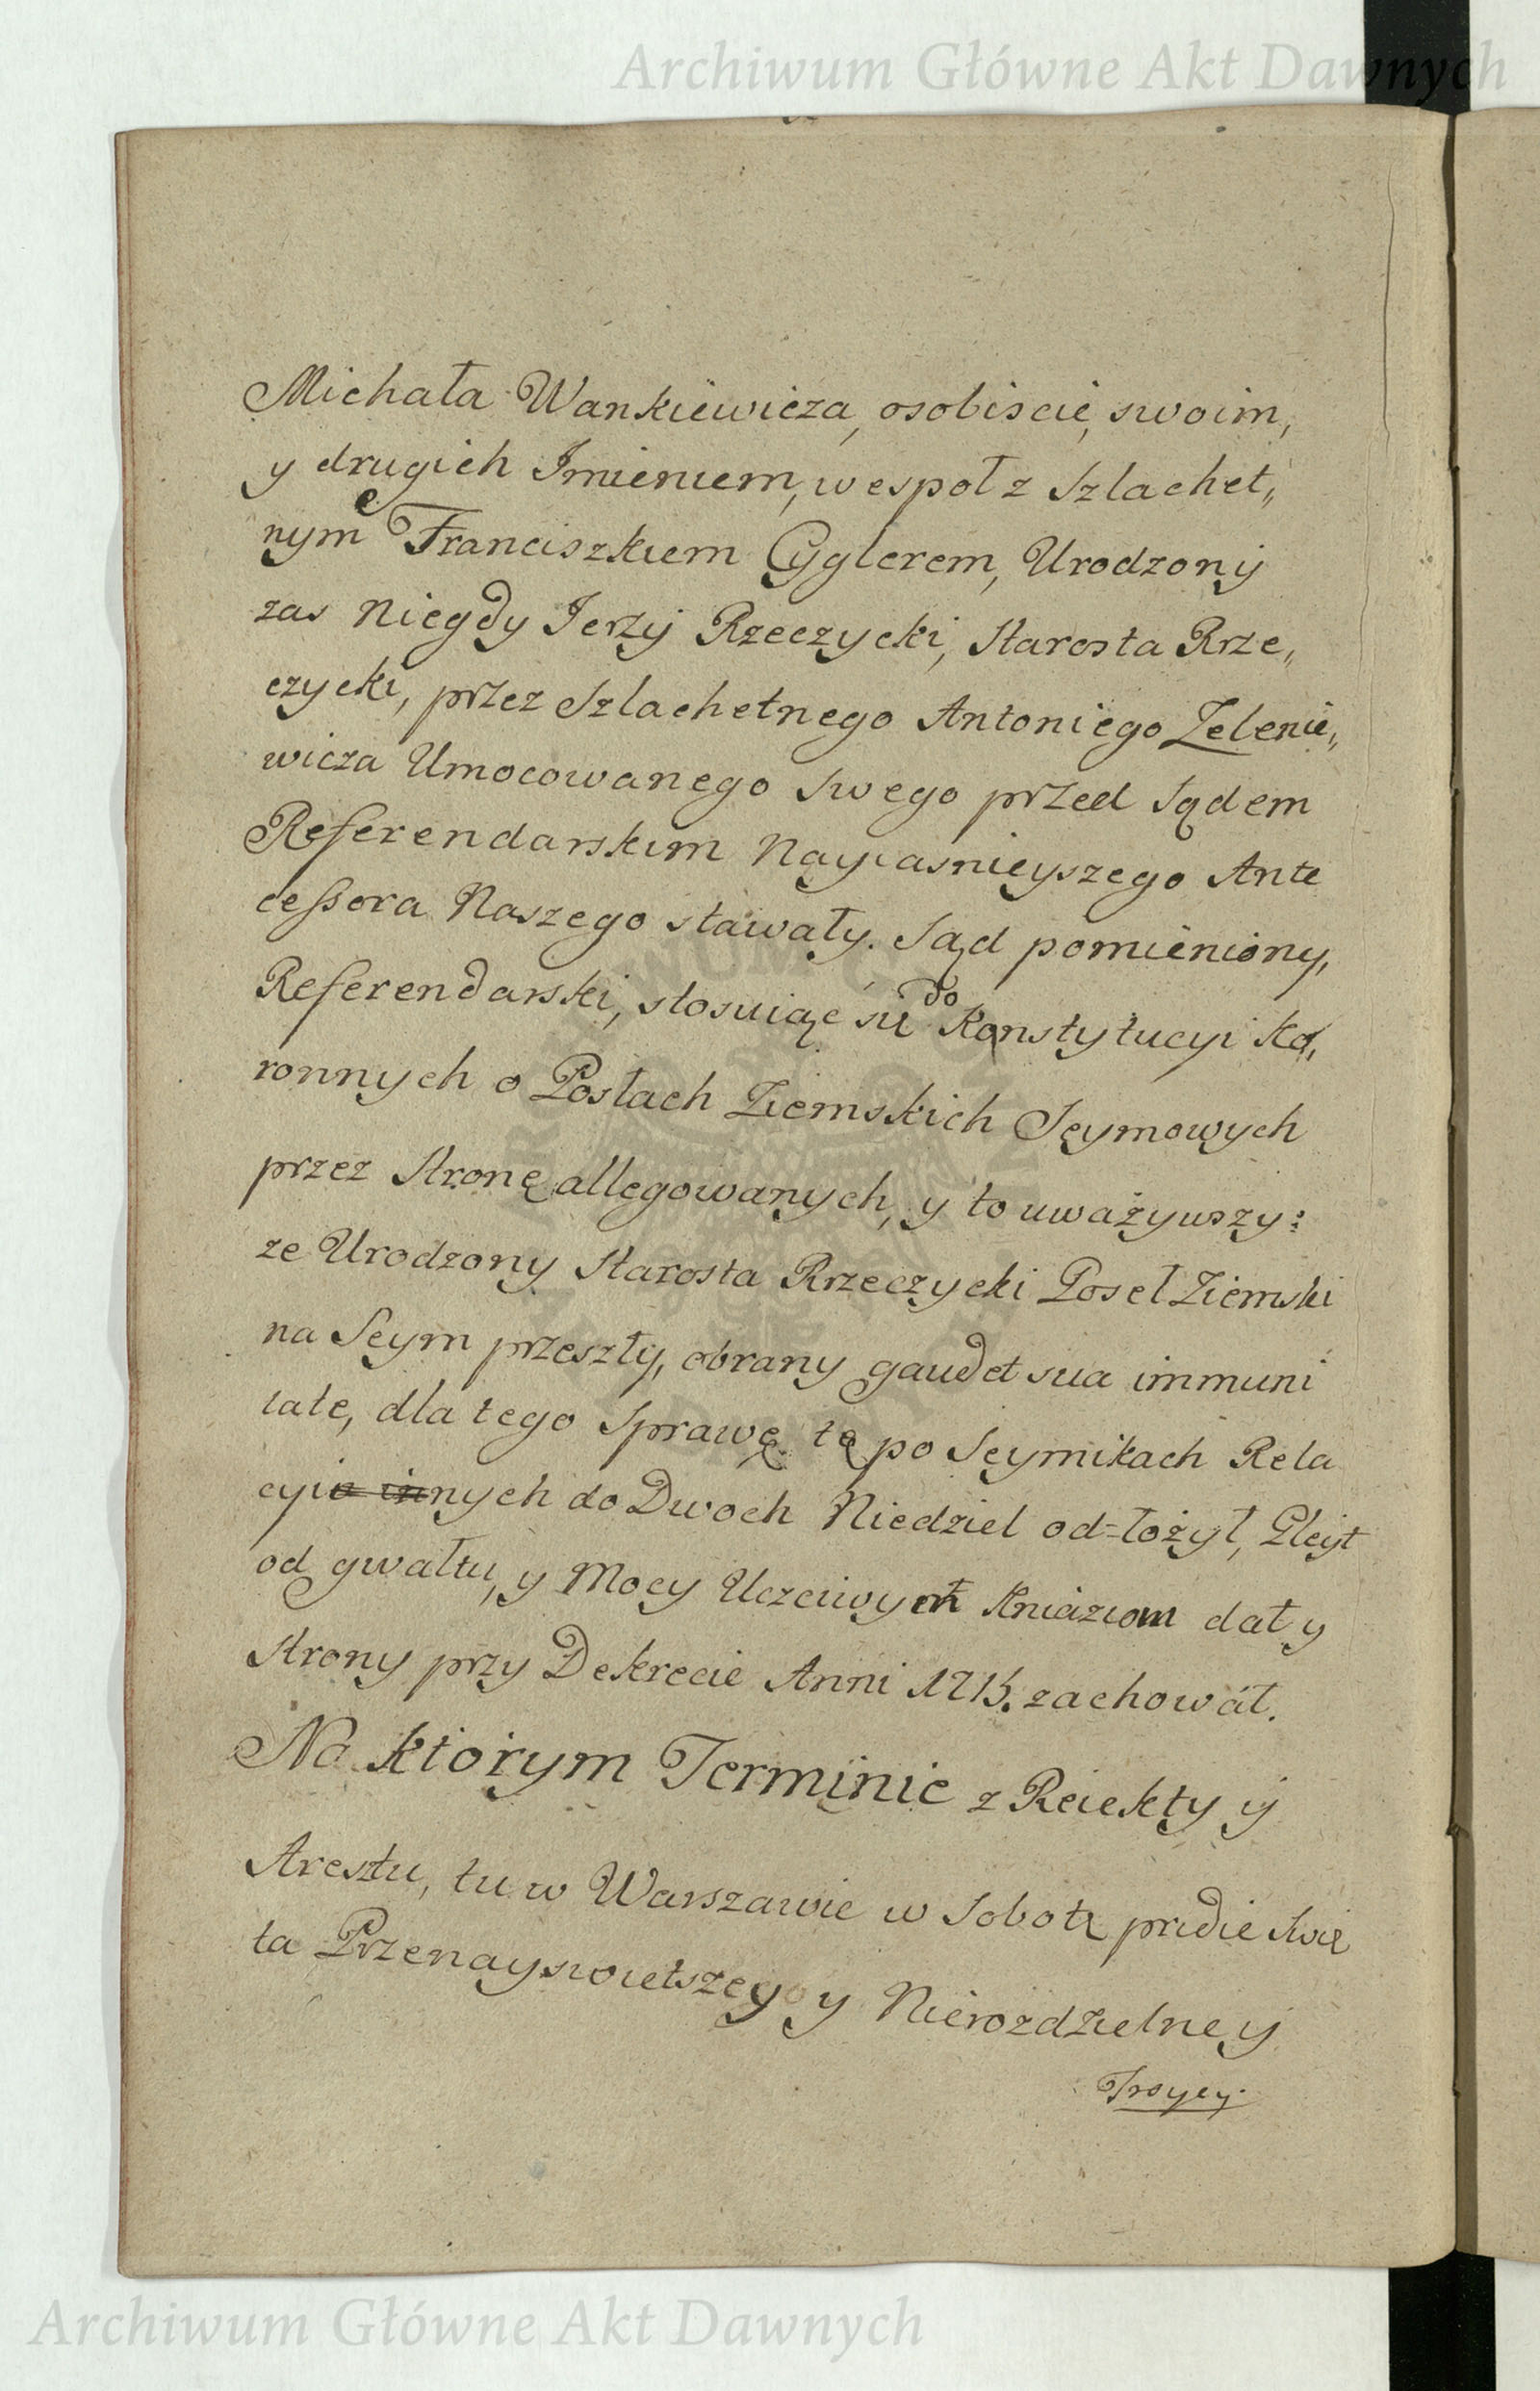 Archiwum Główne Akt Dawnych
Michała Wankiewicza, osobiscie, swoim,
y drugich Imieniem, wespoł z Szlachet„
nym Franciszkiem Cyglerem, Urodzony
zas niegdy Jerzy Rzeczycki, Starosta Rze„
czycki, przez Szlachetnego Antoniego Zelenie„
wicza Umocowanego swego przed Sądem
Referendarskim Nayiasnieyszego Ante
cessora Naszego stawały. Sąd pomieniony,
Referendarski, stosuiąc się do Konstytucyi Ko„
ronnych o Posłach Ziemskich Seymowych
przez Stronę allegowanych, y to uważywszy:
ze Urodzony Starosta Rzeczycki Poseł Ziemski
na Seym przeszły, obrany gaudet sua immuni
tate, dla tego Sprawę tę po Seymikach Rela
cyinych do Dwoch Niedziel od=łożył, Gleyt
od gwałtu, y Mocy Uczciwym Kniaziom dał y
Strony przy Dekrecie Anni zachował.
Na ktorym Terminie z Reiekty y
Aresztu, tu w Warszawie w Sobotę pridie Swię
ta Przenayswietszey y Nierozdzielney
Troycy.
Archiwum Główne Akt Dawnych